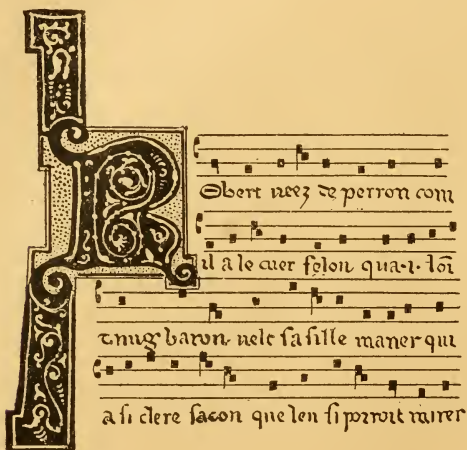 RObert ueez de perron com
il a le cuer felon qua·i· loī
baron· uelt sa fille maner qui
a si clere facon que len si porroit mirer